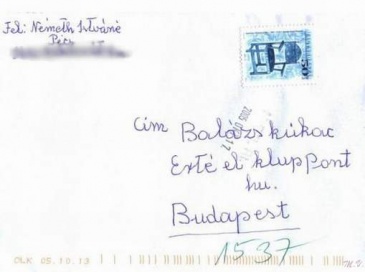 Fel: Németh Istváné
Pécs
Cím Balázs kukac
Erté el kluppont
hu.
Budapest
1537
OLK 05.10.13